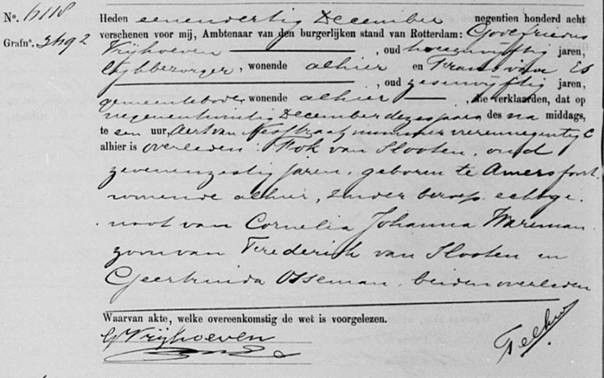 No. 6118 Heden eenendertig December negentien honderd acht
Grafno. 3492 verschenen voor mij, Ambtenaar van den burgerlijken stand van Rotterdam: Godefriedus
Vrijhoeven, oud tweeenvijftig jaren,
lijkbezorger, wonende alhier en Frans van Es
, oud zesenvijftig jaren,
gemeentebode, wonende alhier, die verklaarden, dat op
negenentwintig December dezes jaars des na middags,
te een uur, Aert van nummer
alhier is overleden: Rok van Slooten, oud
zevenenzestig jaren, geboren te Amersfoort
wonende alhier, zonder beroep, echtge-
noot van Cornelia Johanna Wareman
zoon van Frederick van Slooten en
Geertruida Osseman, beiden overleden
Waarvan akte, welke overeenkomstig de wet is voorgelezen.
G Vrijhoeven